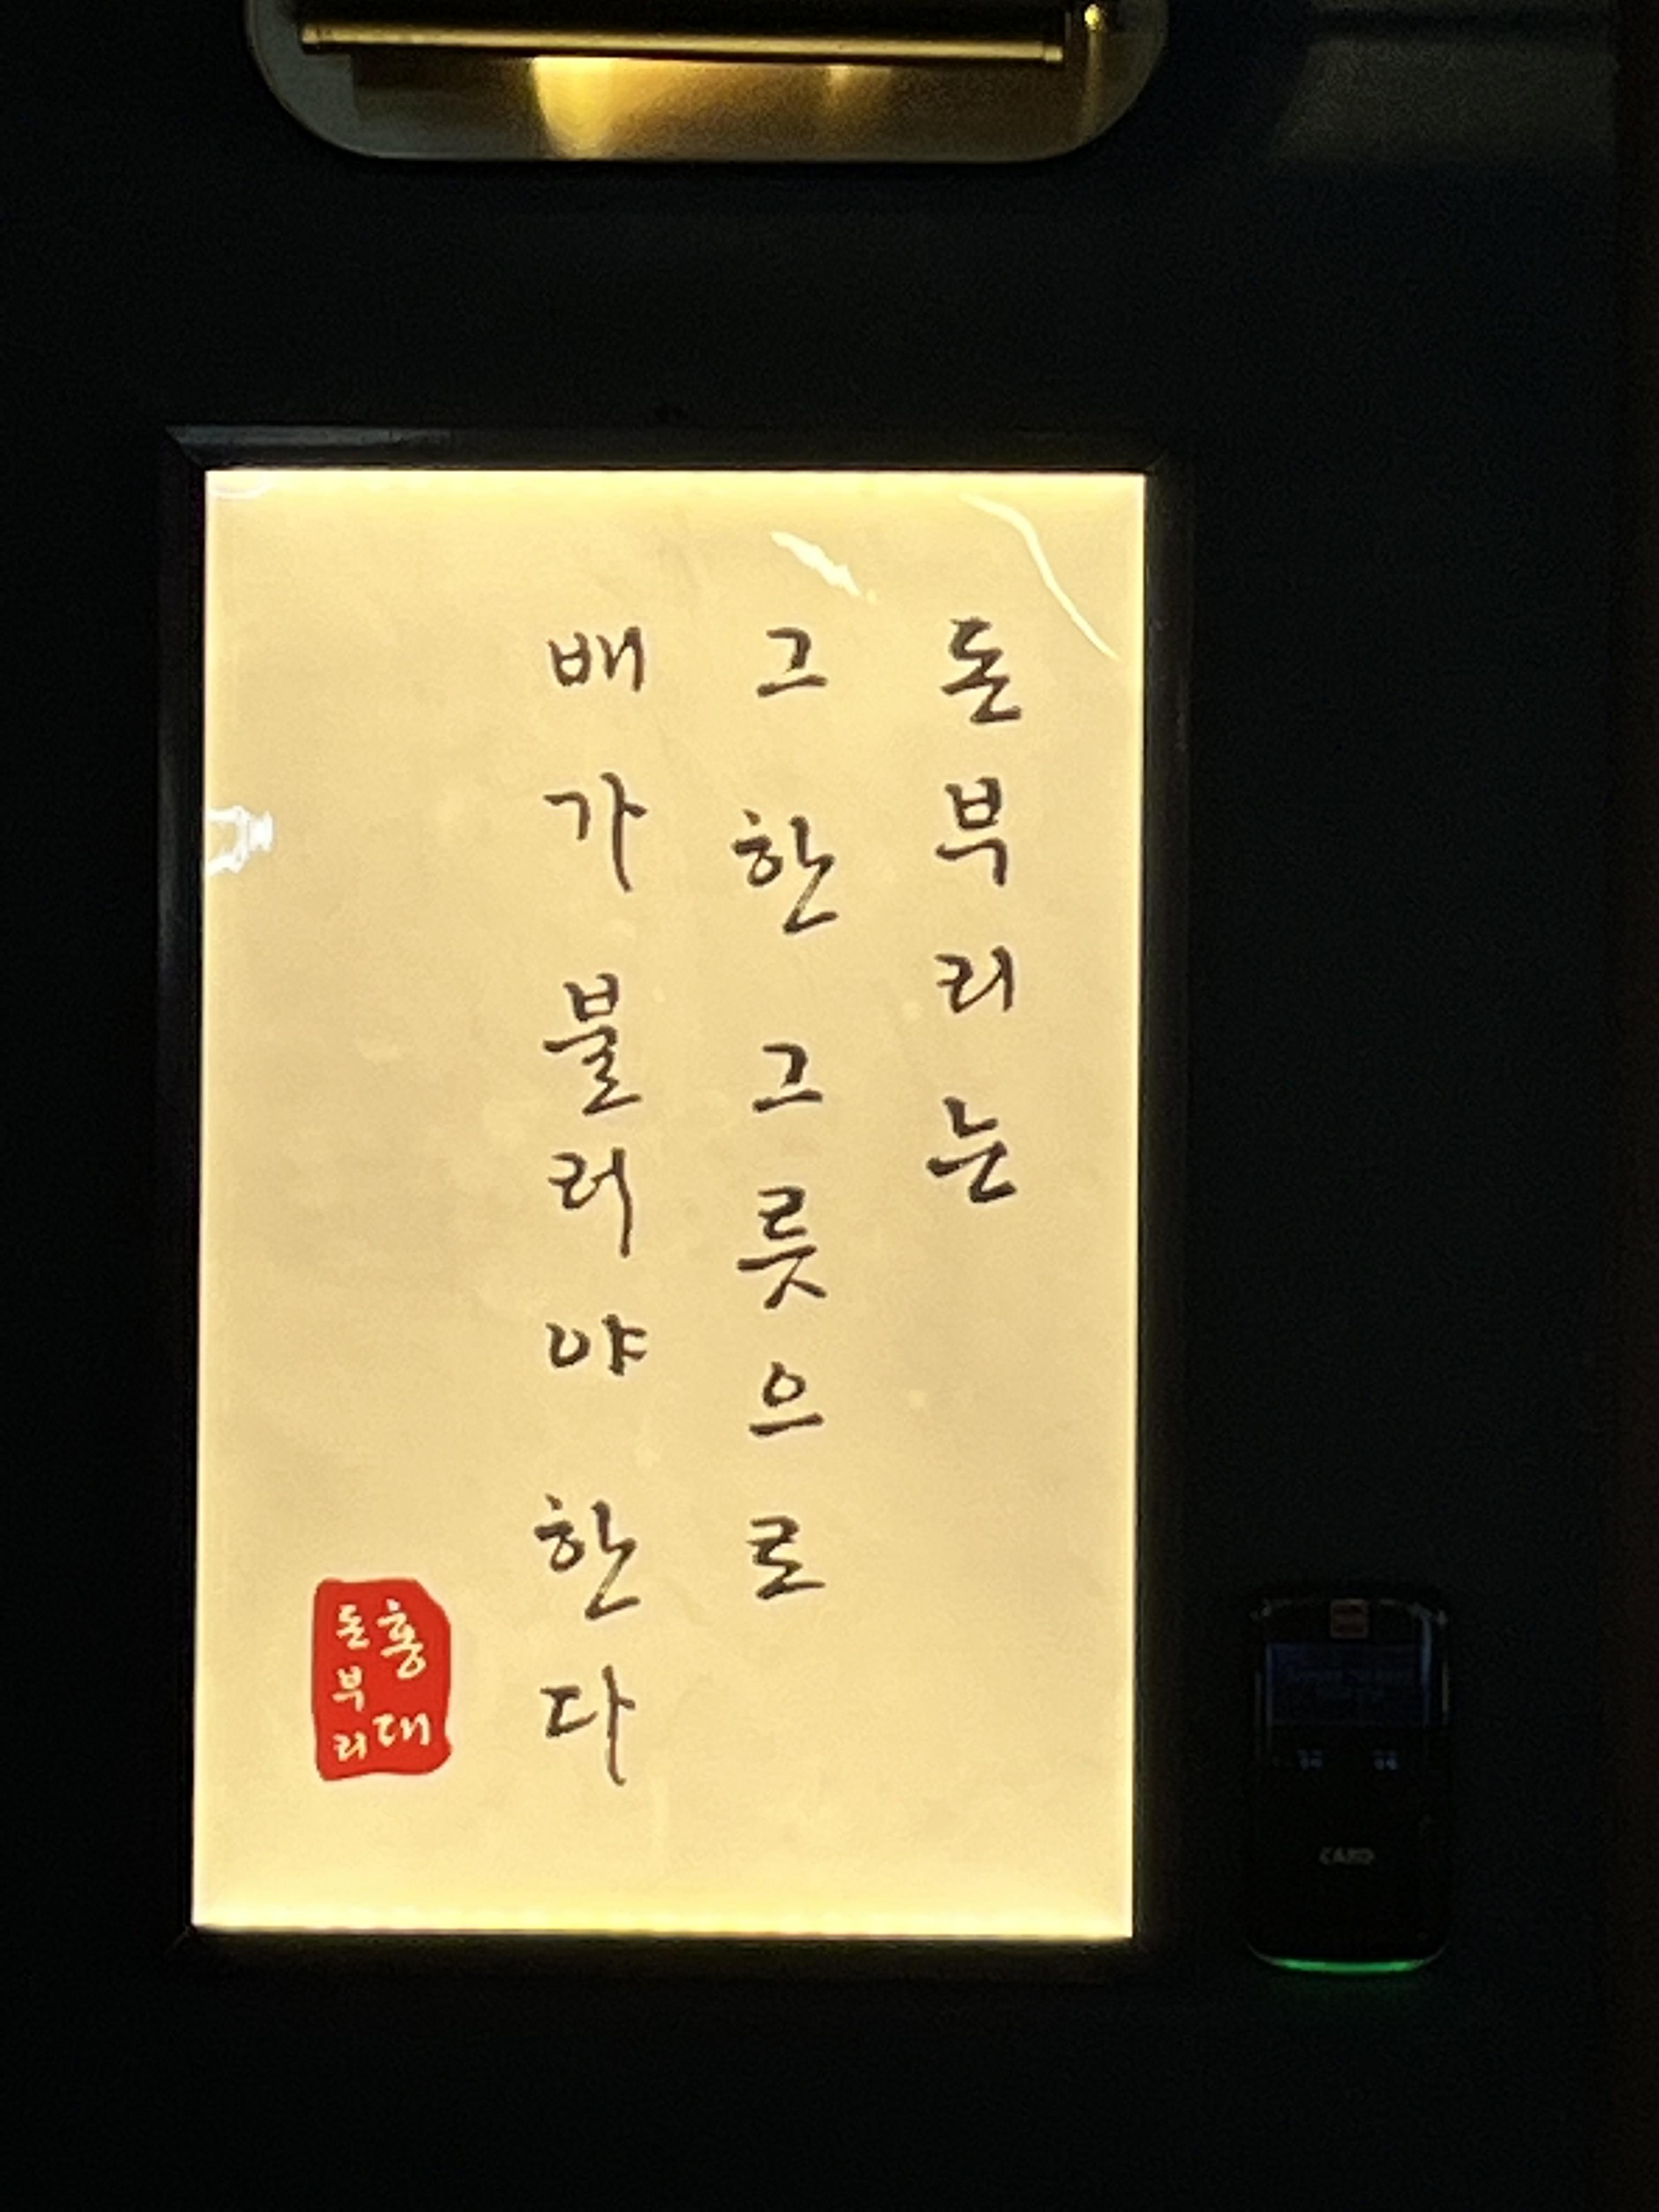 돈부리는
그 한 그릇으로
배가 불러야 한다
홍대
돈부리
CARD